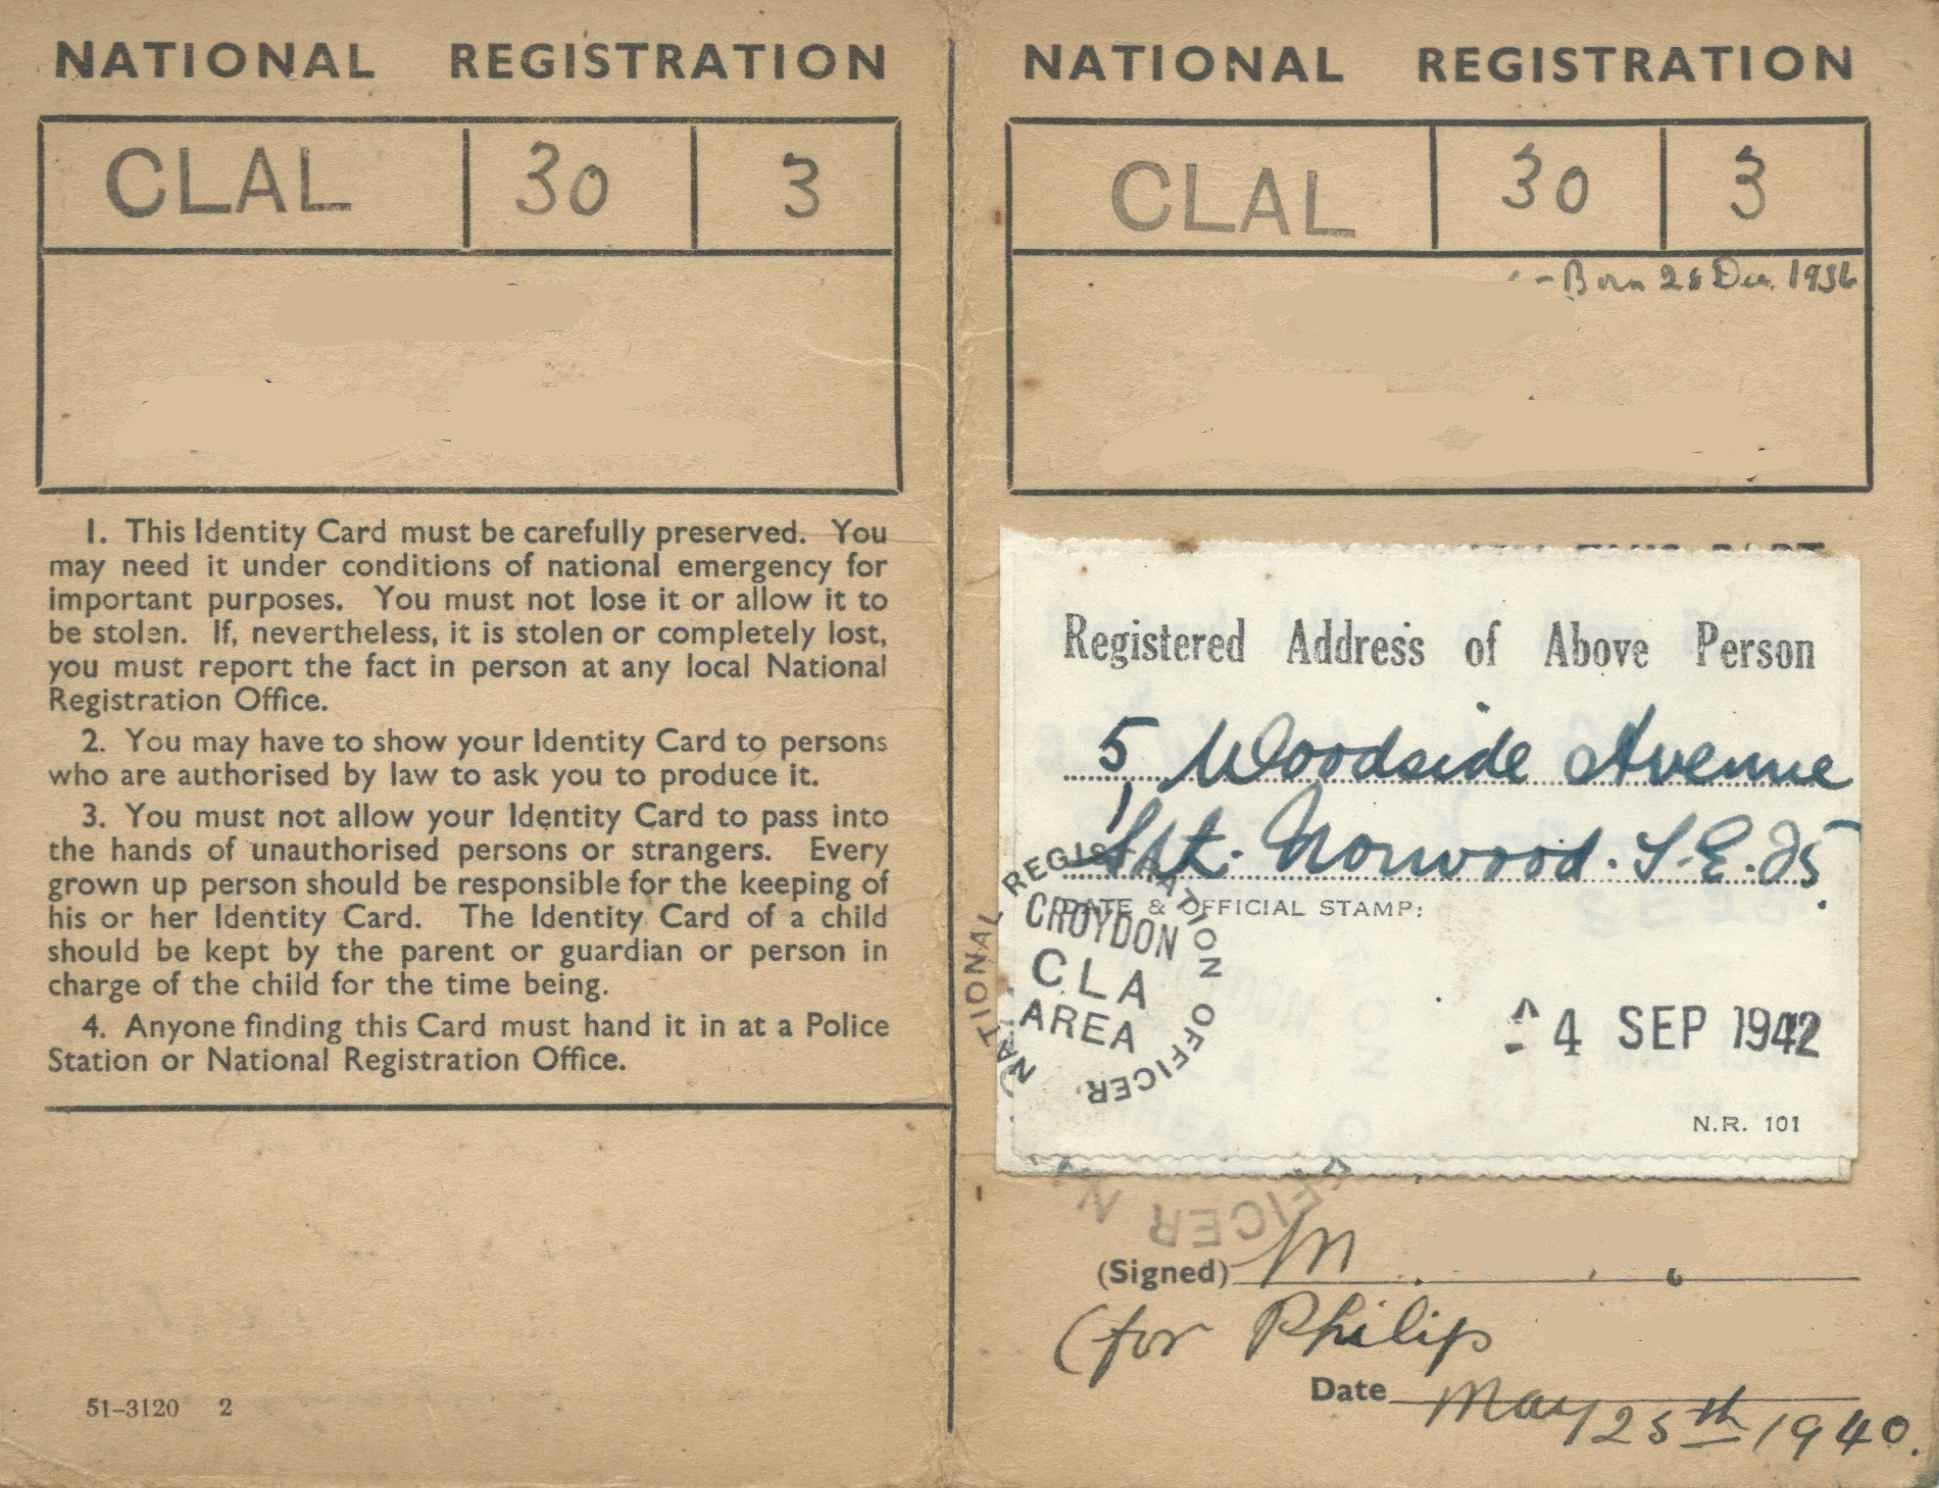 NATIONAL REGISTRATION
CLAL 30 3
1. This Identity Card must be carefully preserved. You
may need it under conditions of national emergency for
important purposes. You must not lose it or allow it to
be stolen. If, nevertheless, it is stolen or completely lost,
you must report the fact in person at any local National
Registration Office.
2. You may have to show your Identity Card to persons
who are authorised by law to ask you to produce it.
3. You must not allow your Identity Card to pass into
the hands of unauthorised persons or strangers. Every
grown up person should be responsible for the keeping of
his or her Identity Card. The Identity Card of a child
should be kept by the parent or guardian or person in
charge of the child for the time being.
4. Anyone finding this Card must hand it in at a Police
Station or National Registration Office.
51-3120 2
NATIONAL REGISTRATION
CLAL 30 3
Born 28 Dec. 1936
Registered Address of Above Person
5 Woodside Avenue
Sth. Norwood. S.E.25.
DATE & OFFICIAL STAMP:
NATIONAL REGISTRATION OFFICER.
CROYDON
CLA
AREA
4 SEP 1942
N.R. 101
OFFICER N
(Signed) M
(for Philip
Date May 25th 1940.